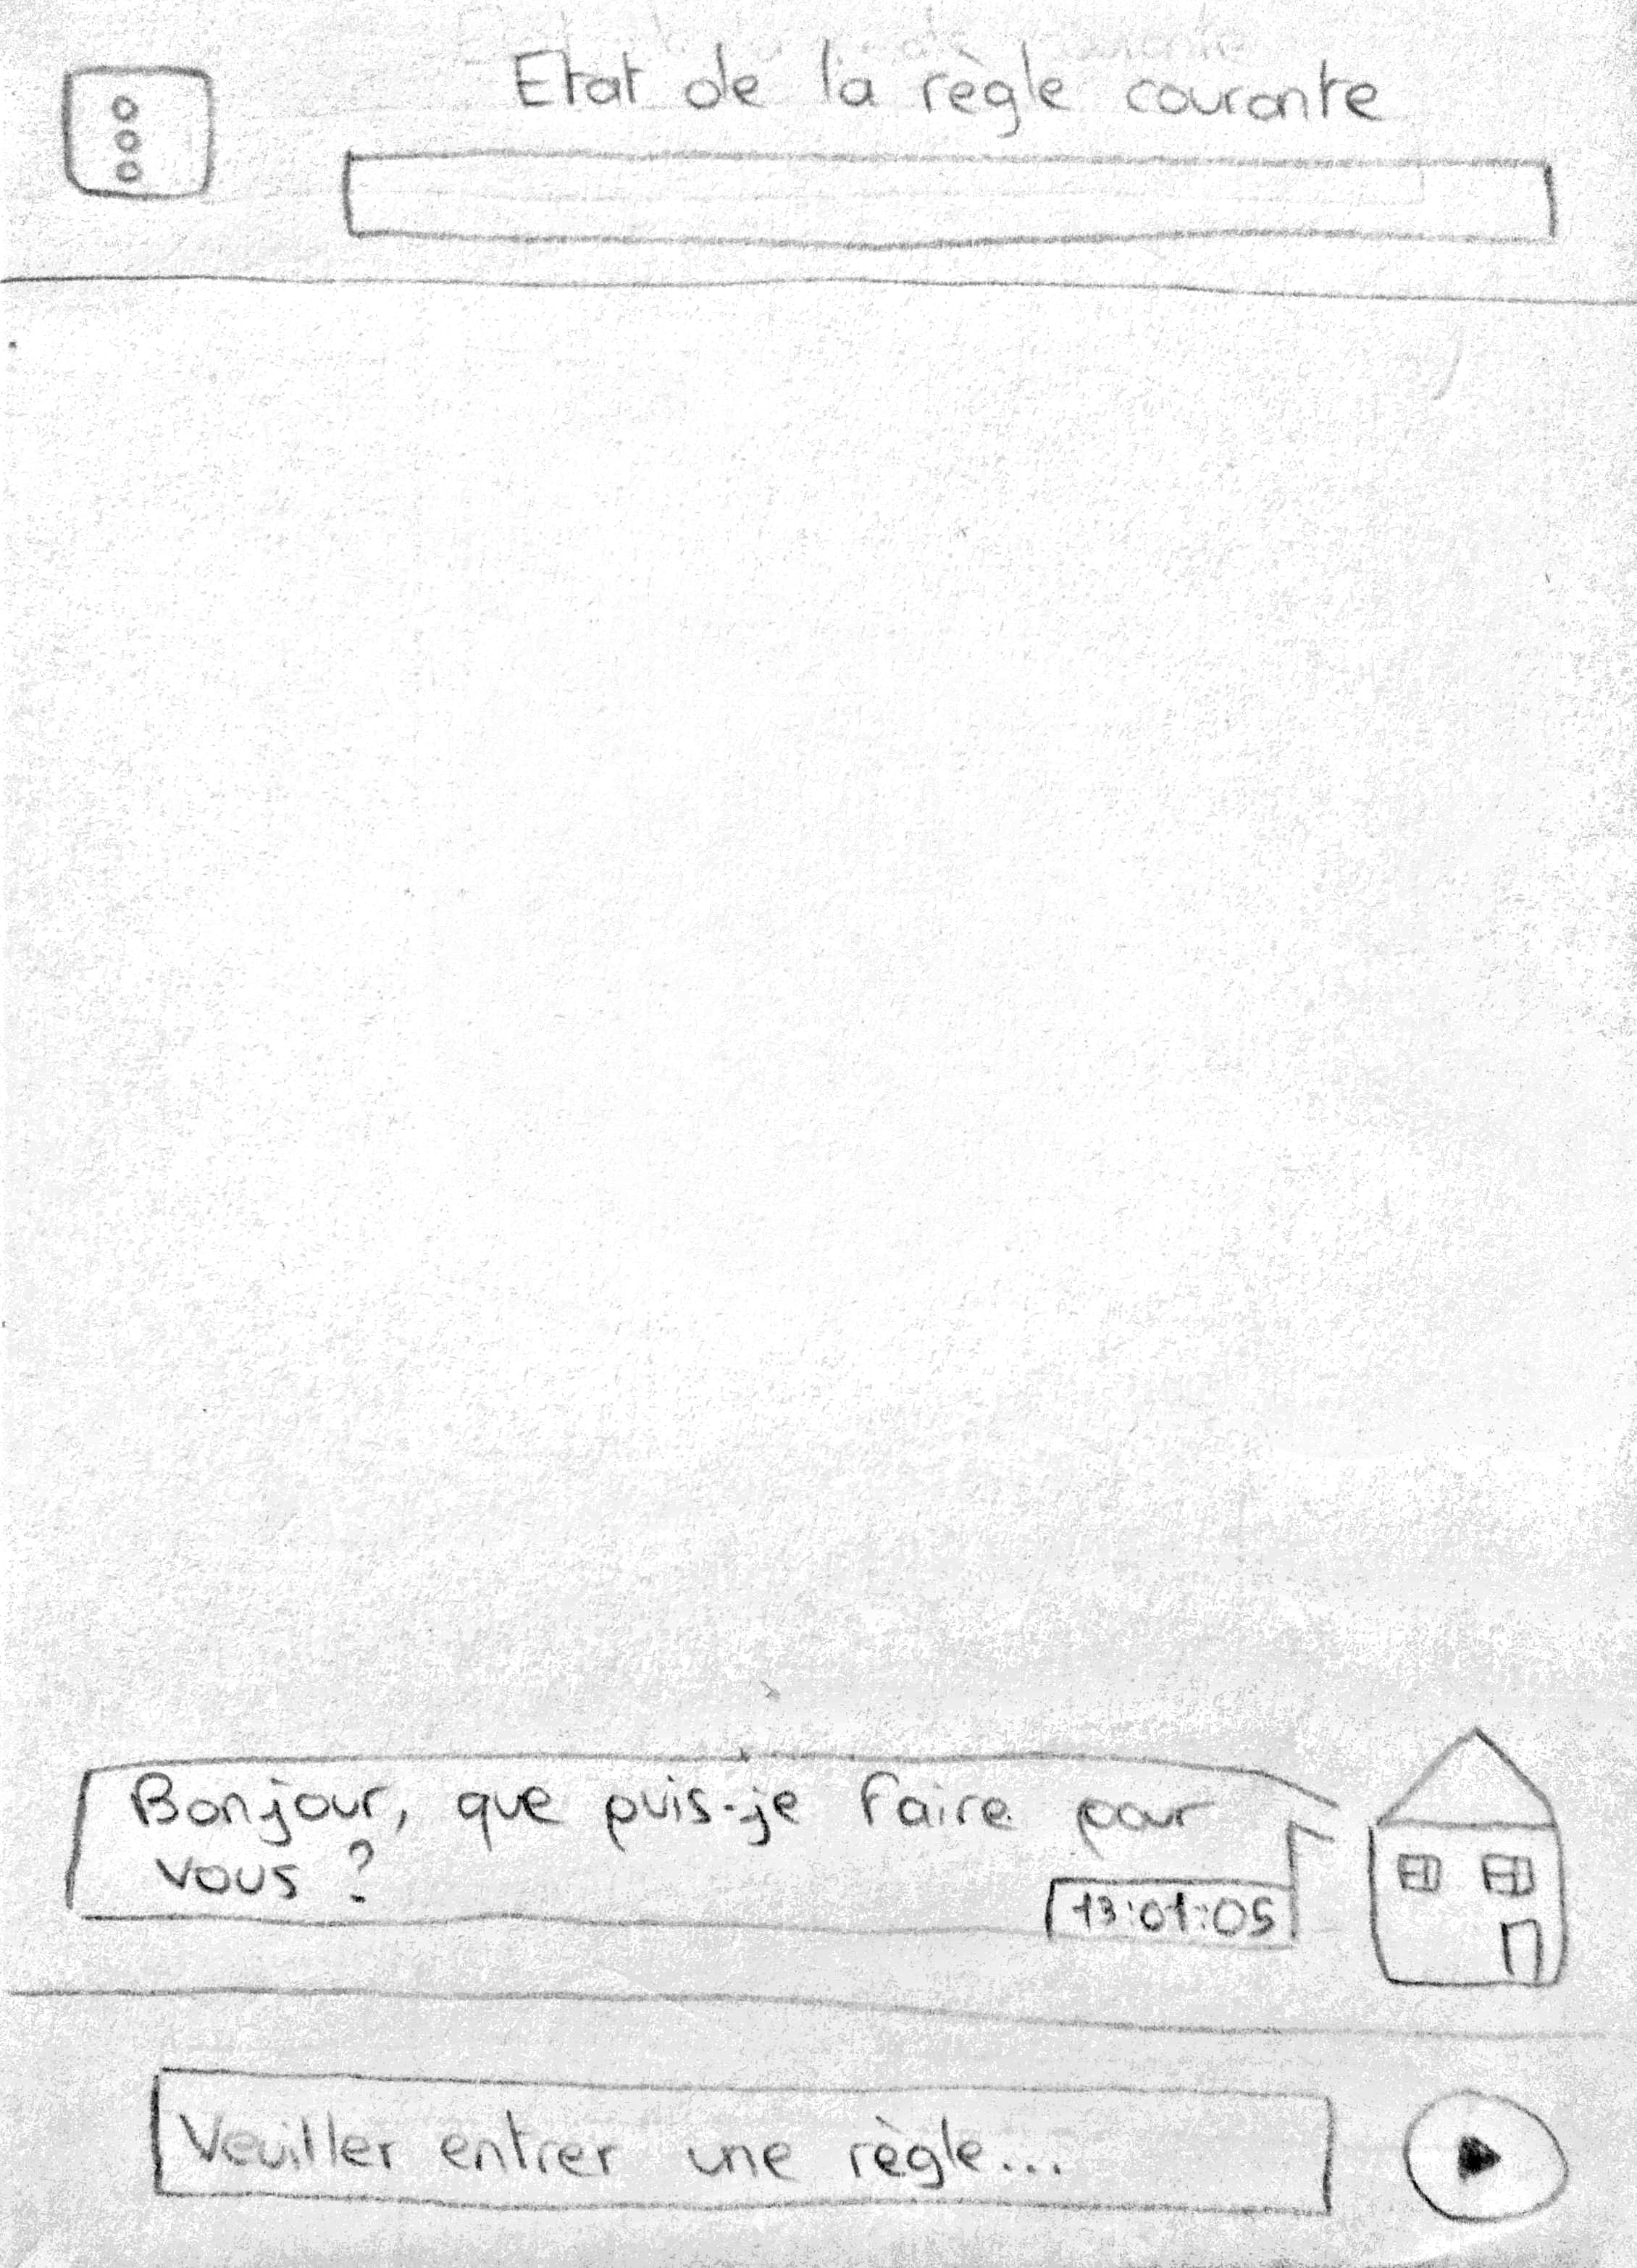 Etat de la règle courante
Bonjour, que puis-je faire pour
vous ?
13:01:05
Veuiller entrer une règle...